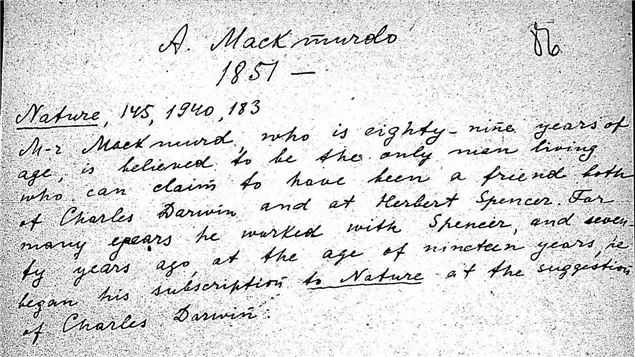 A. Mackmurdo
86
1851 —
Nature, 145, 1940, 183
M-r Mackmurd, who is eighty-nine years of
age, is believed to be the only man living
who can claim to have been a friend both
of Charles Darwin and at Herbert Spencer. For
many years he worked with Spencer, and seven-
ty years ago, at the age of nineteen years, he
began his subscription to Nature at the suggestion
of Charles Darwin.